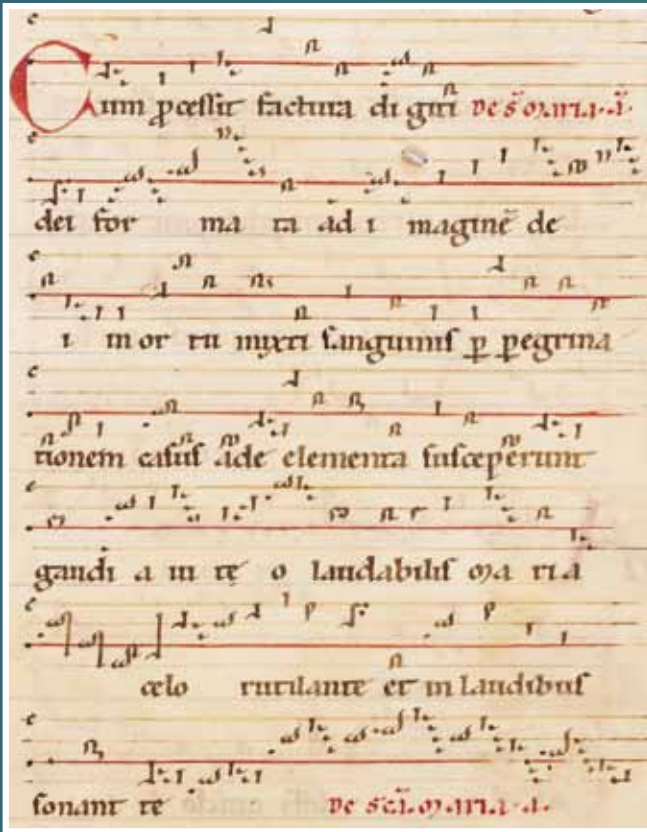 Cum ꝓcessit factura di giti De s̄ Maria. ā.
dei for ma ta ad i maginē de
i in or tu mixti sanguinis ꝑ ꝑegrina
tionem casus ade elementa susceperunt
gaudi a in te o laudabilis Ma ria
celo rutilante et in laudibus
sonant te De sc̄a Maria. a.